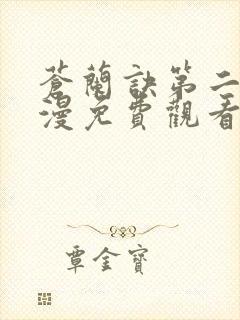 蒼蘭訣第二
漫免費觀看
覃金寶